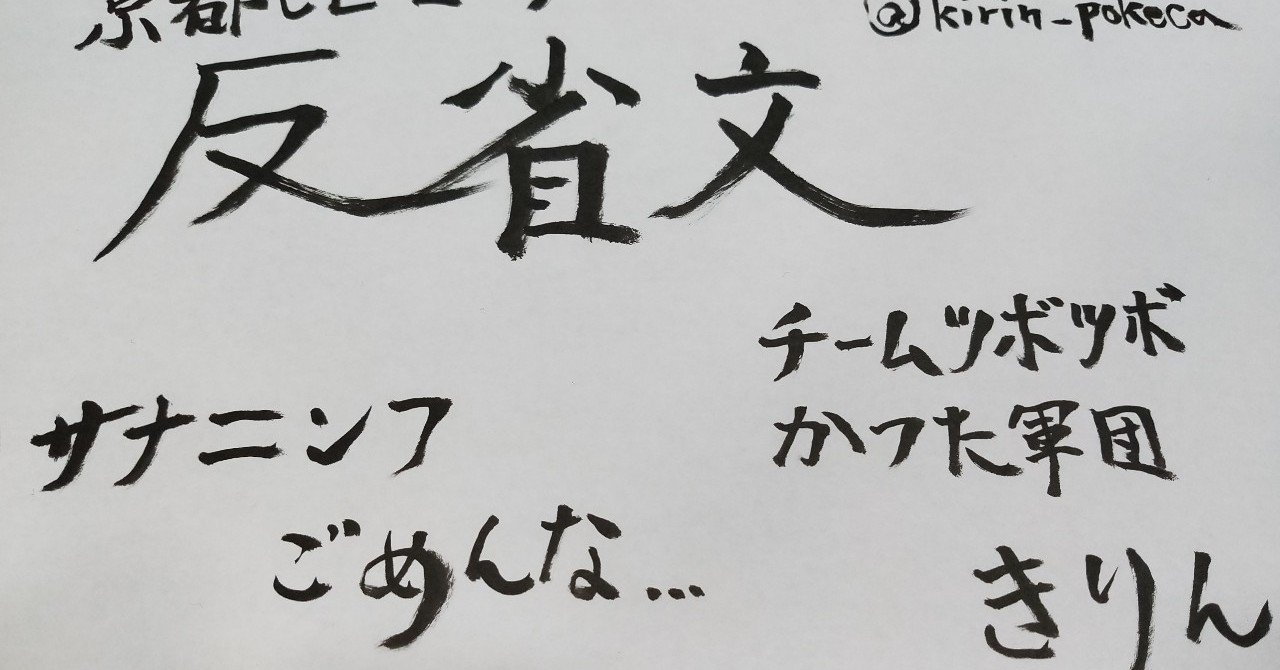 京都
@kirin_pokeca
反省文
チームツボツボ
かつた軍団
サナニンフ
ごめんな…
きりん